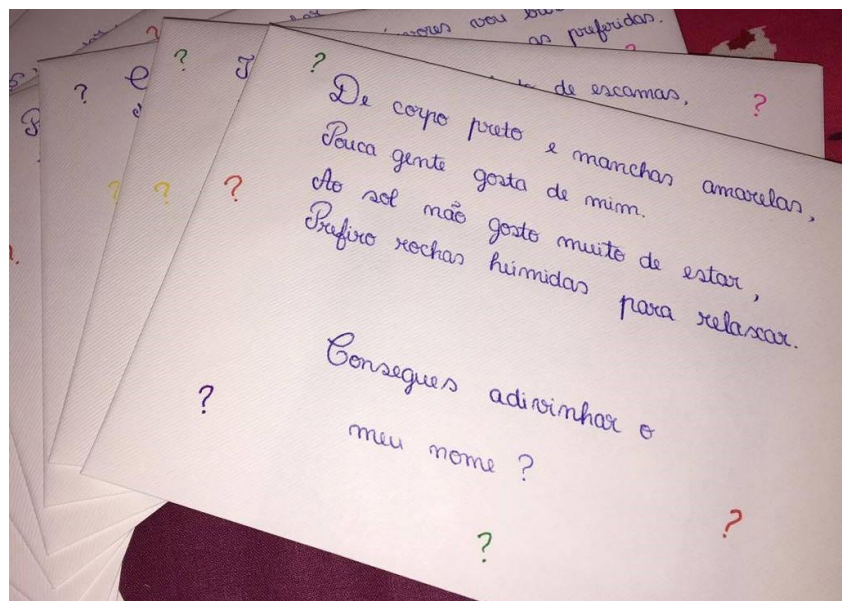 vores vou
as preferidas.
de escamas,
De corpo preto e manchas amarelas,
Pouca gente gosta de mim.
Ao sol não gosto muito de estar,
Prefiro rochas húmidas para relaxar.
Consegues adivinhar o
meu nome ?